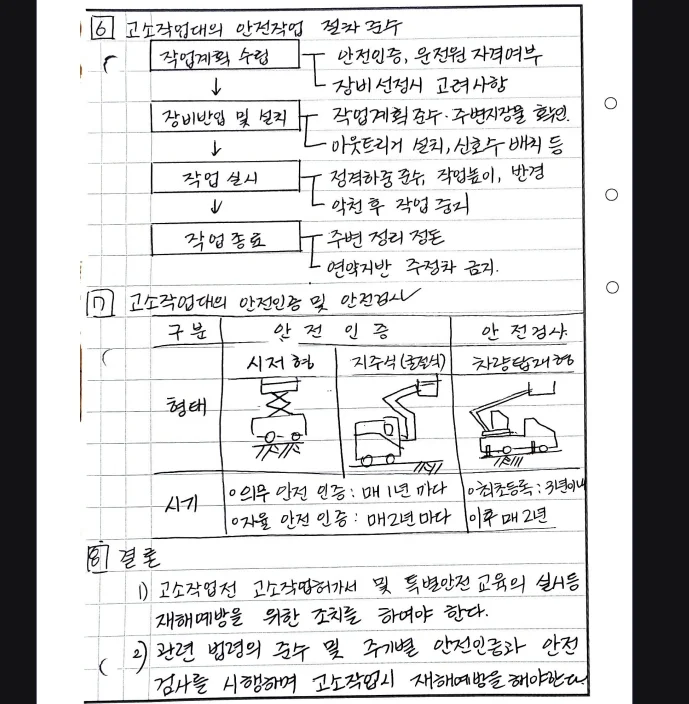 6 고소작업대의 안전작업 절차 준수
작업계획 수립
안전인증, 운전원 자격여부
↓
장비선정시 고려사항
장비반입 및 설치
작업계획준수·주변지장물 확인.
↓
아웃트리거 설치, 신호수 배치 등
작업 실시
정격하중 준수, 작업높이, 반경
↓
악천후 작업 중지
작업 종료
주변 정리 정돈
연약지반 주정차 금지.
7 고소작업대의 안전인증 및 안전검사
구분
안전인증
안전검사
시저형
지주식(굴절식)
차량탑재형
형태
시기
○의무 안전 인증 : 매 1년 마다
○최초등록 : 3년이내
○자율 안전 인증 : 매2년마다
이후 매 2년
8 결론
1) 고소작업전 고소작업허가서 및 특별안전교육의 실시등
재해예방을 위한 조치를 하여야 한다.
2) 관련 법령의 준수 및 주기별 안전인증과 안전
검사를 시행하며 고소작업시 재해예방을 해야한다